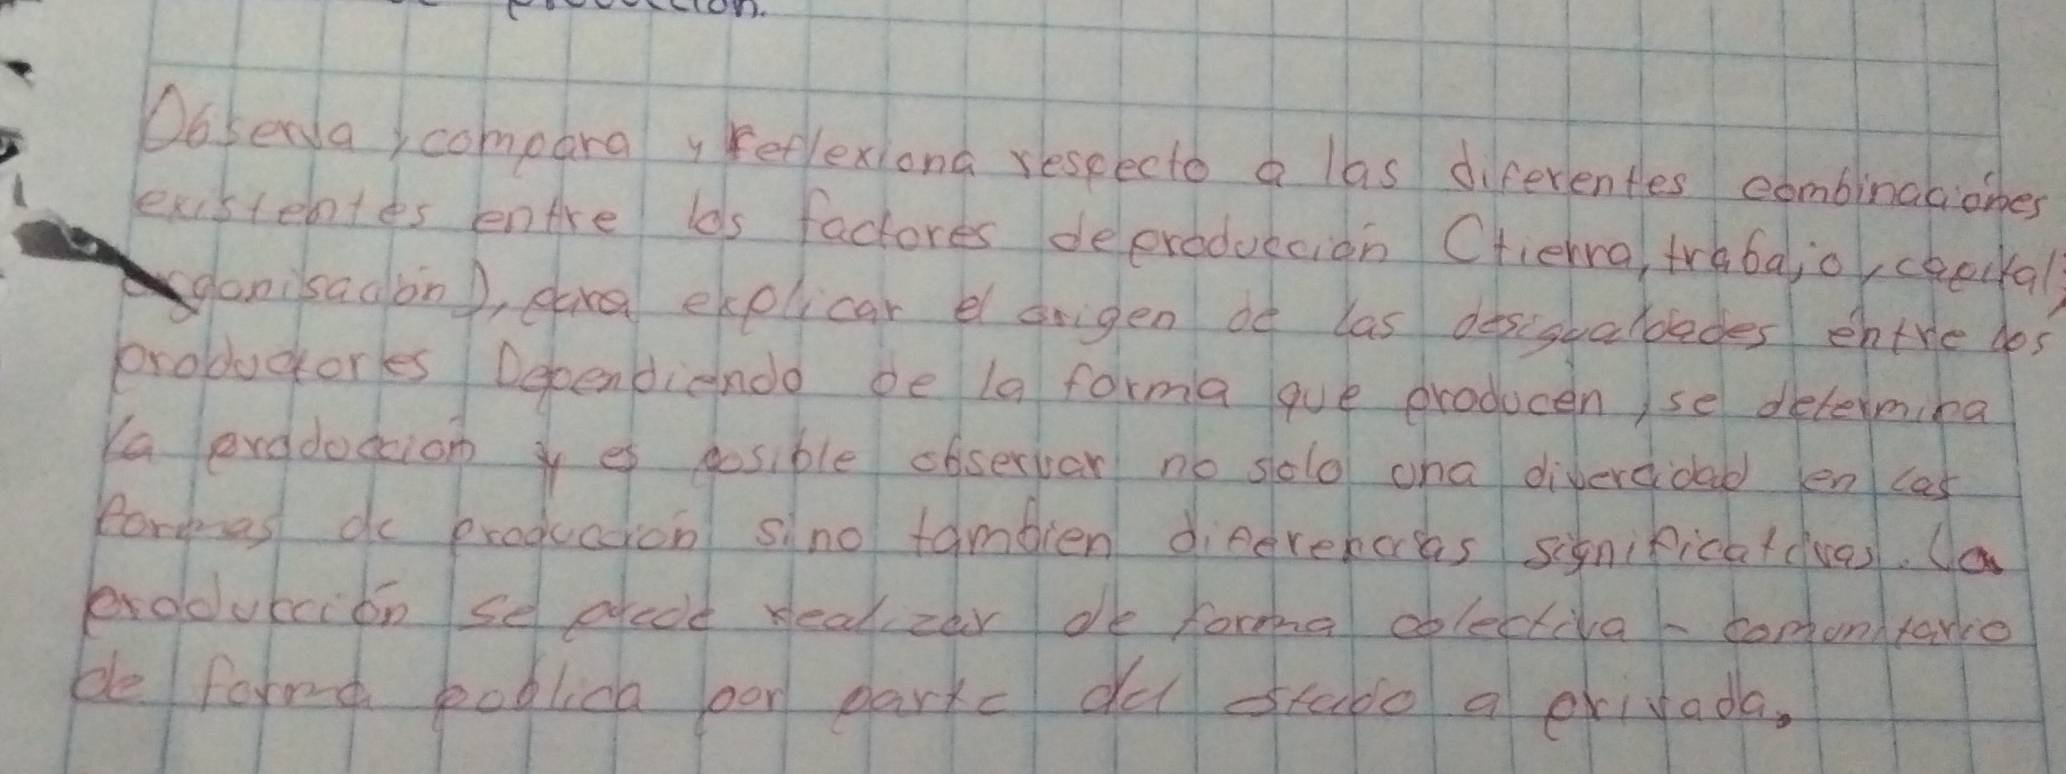 producción.
Observa, compara y reflexiona respecto a las diferentes combinaciones
existentes entre los factores de producción (tierra, trabajo, capital,
organisación), para explicar el origen de las desigualdades entre los
productores Dependiendo de la forma que producen, se determina
la producción y es posible observar no solo una divercidad en las
formas de producción sino tambien diferencias significativas. La
producción se puede realizar de forma colectiva - comunitario
de forma publica por parte del stado a privada.